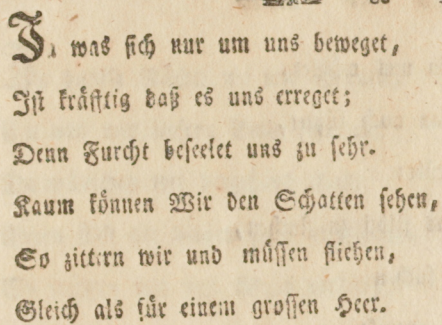 Ja was sich nur um uns beweget,
Ist kräfftig daß es uns erreget;
Denn Furcht beseelet uns zu sehr.
Kaum können Wir den Schatten sehen,
So zittern wir und müssen fliehen,
Gleich als für einem grossen Heer.